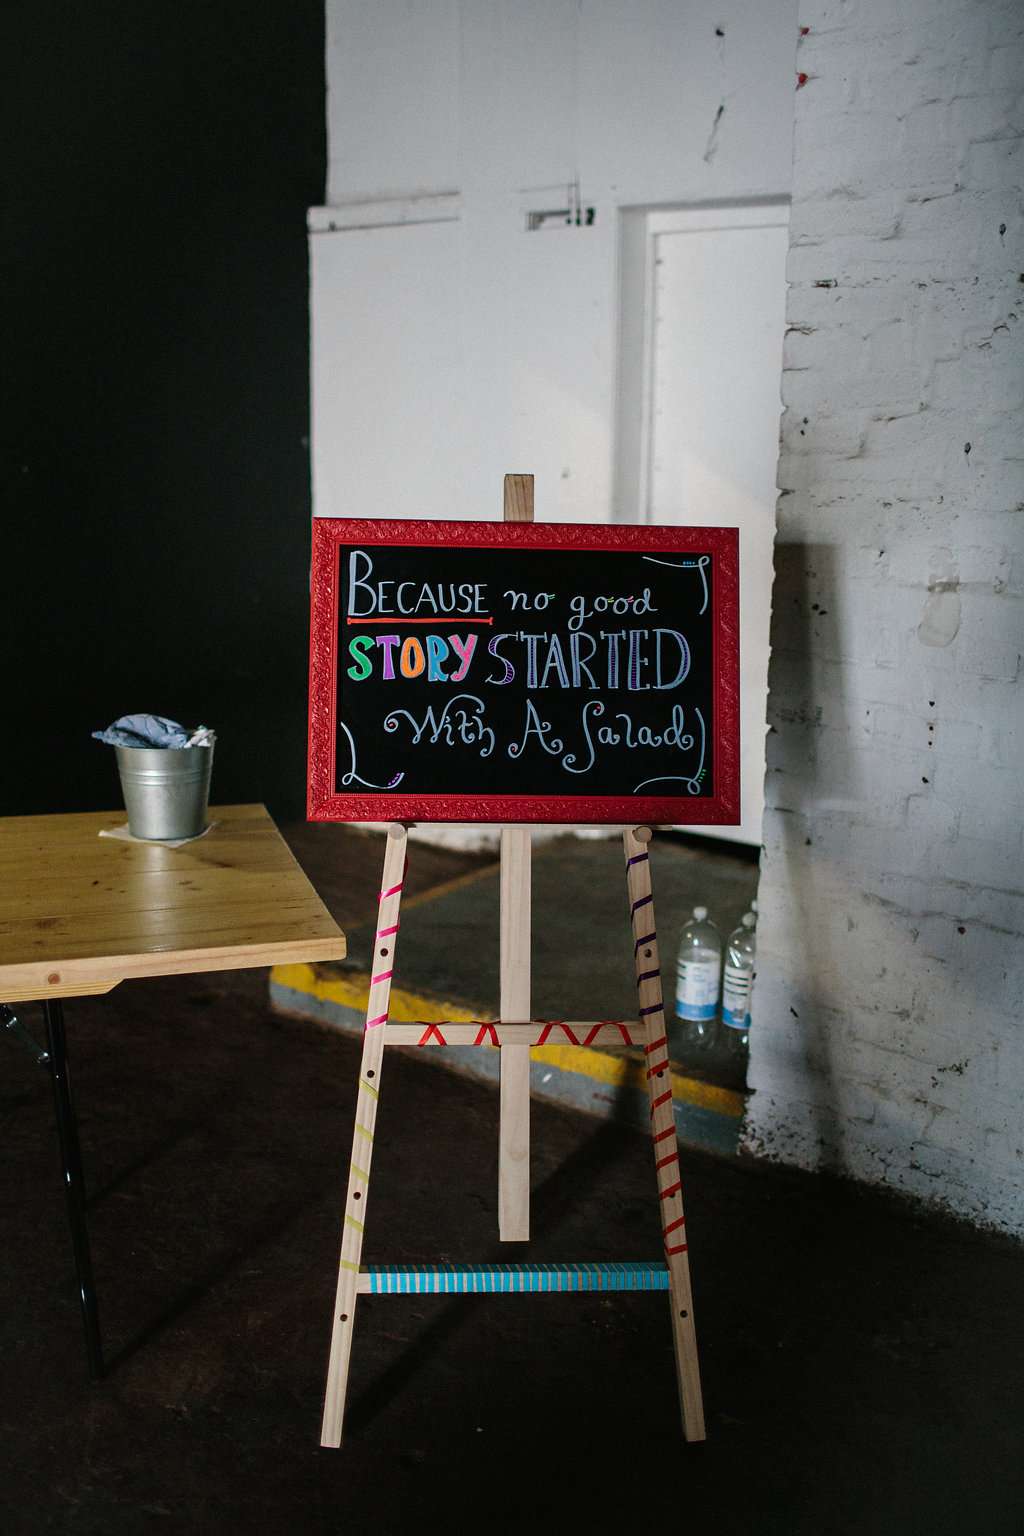 BECAUSE no good
STORY STARTED
With A Salad